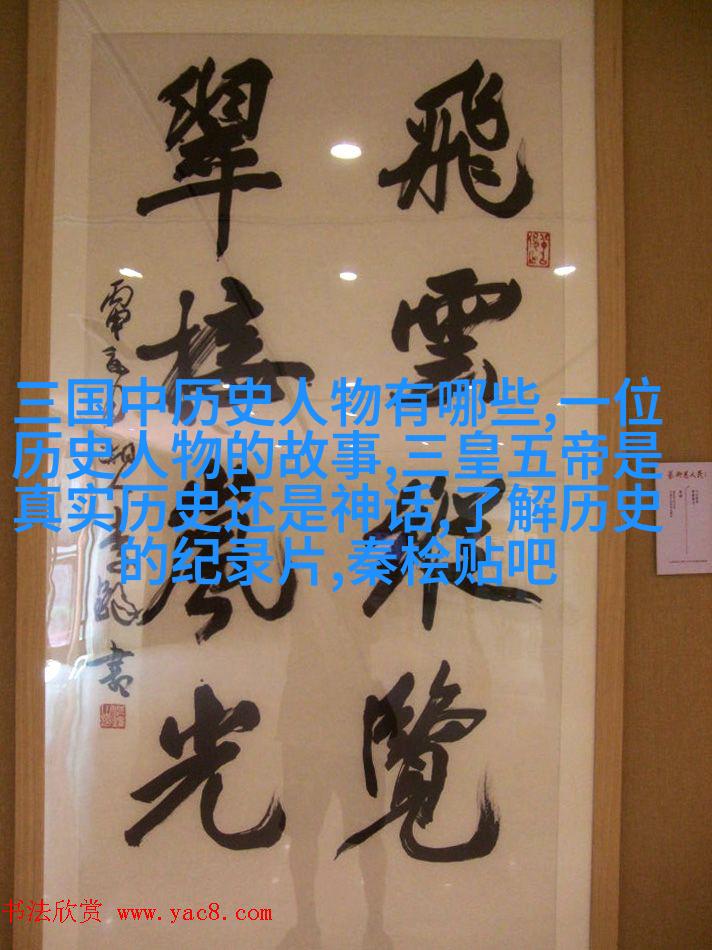 飛雲縱覽
翠接嵐光
書
三国中历史人物有哪些,一位
历史人物的故事,三皇五帝是
真实历史还是神话,了解历史
的纪录片,秦桧贴吧
书法欣赏 www.yac8.com